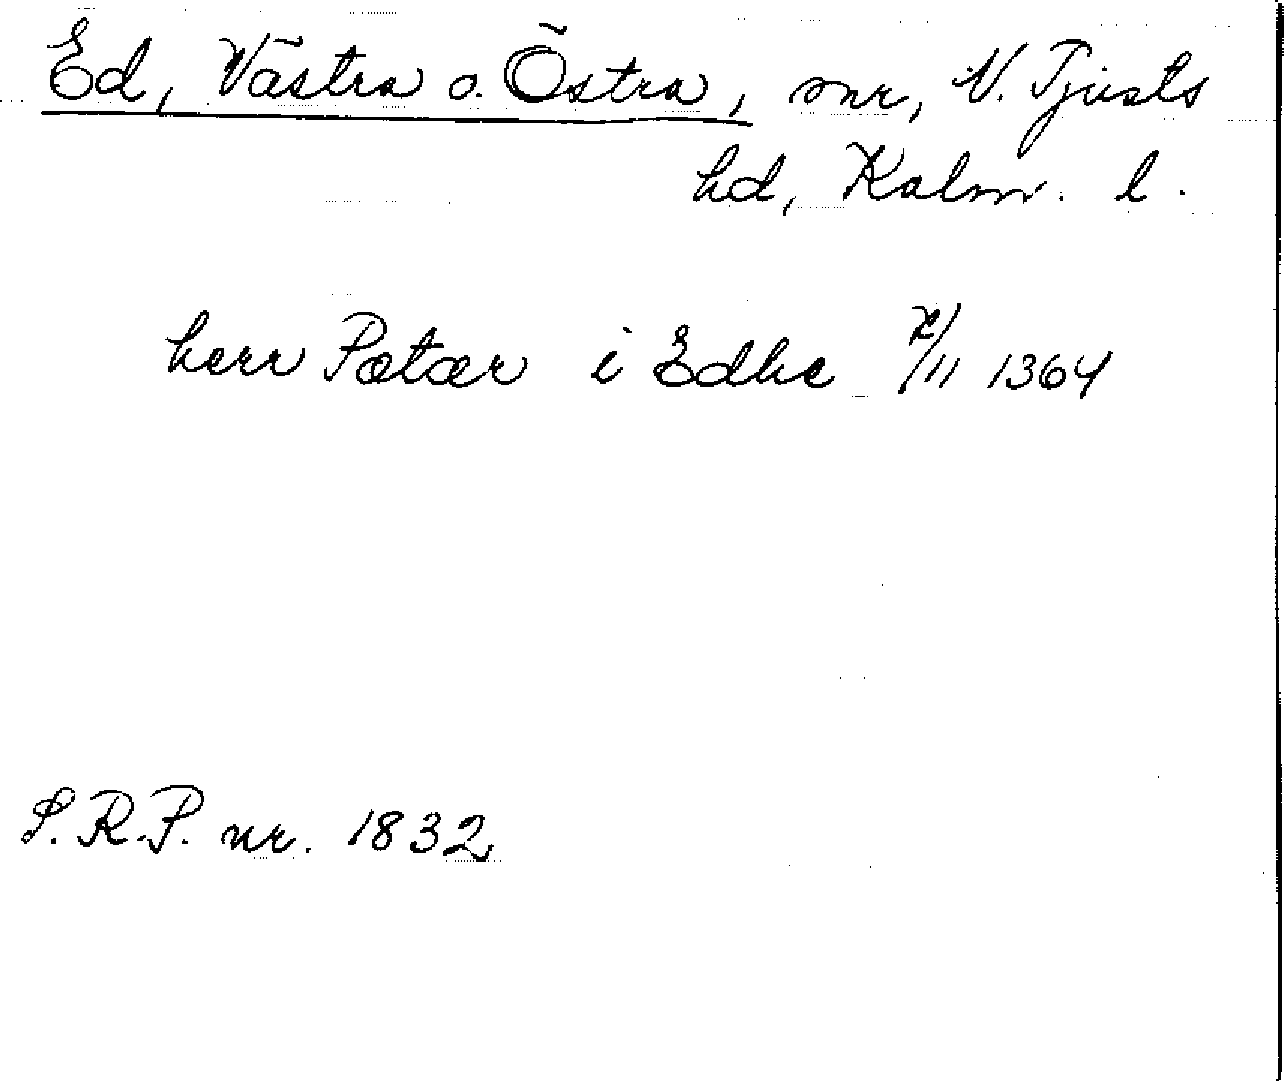 Ed, Västra o. Östra, snr, N. Tjusts
hd, Kalm. l.
herr Pætær i Edhe 7/11 1364
S.R.P. nr. 1832